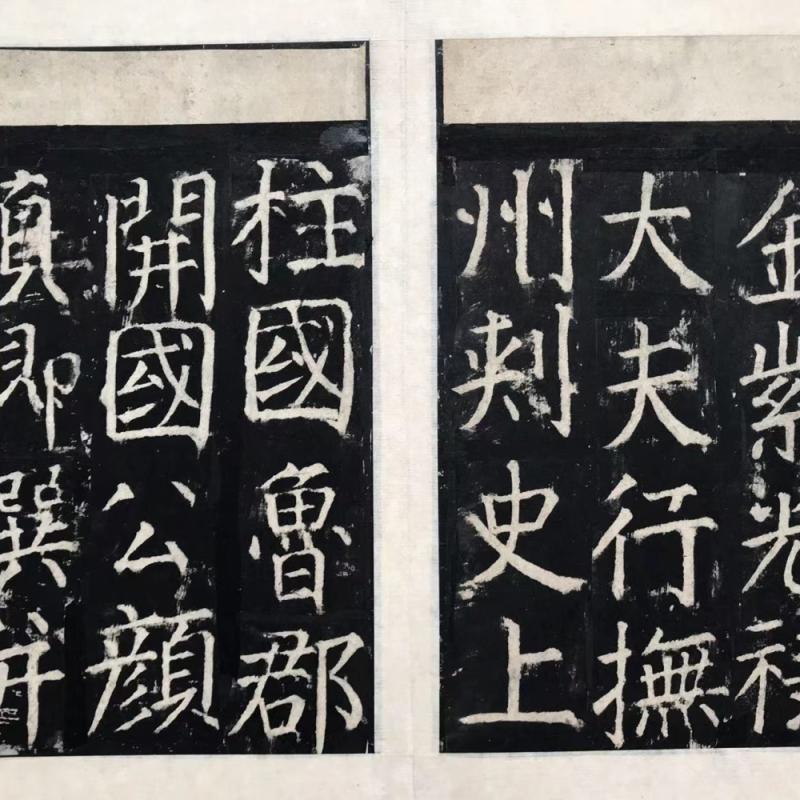 金紫光祿
大夫行撫
州刺史上
柱國魯郡
開國公顔
真卿撰并